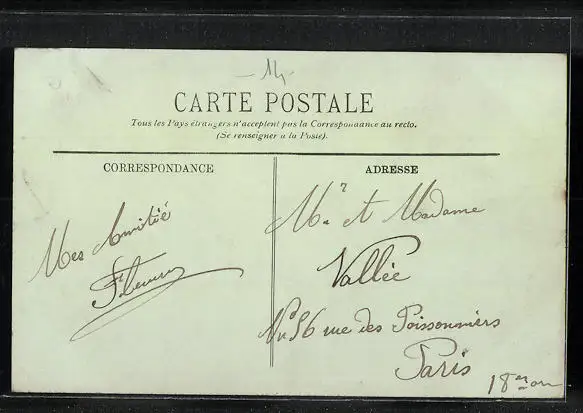 - 14 -
CARTE POSTALE
Tous les Pays étrangers n'acceptent pas la Correspondance au recto.
(Se renseigner à la Poste).
CORRESPONDANCE
ADRESSE
Mes Amitié
Mr et Madame
Vallée
56 rue des Poissonniers
Paris
18